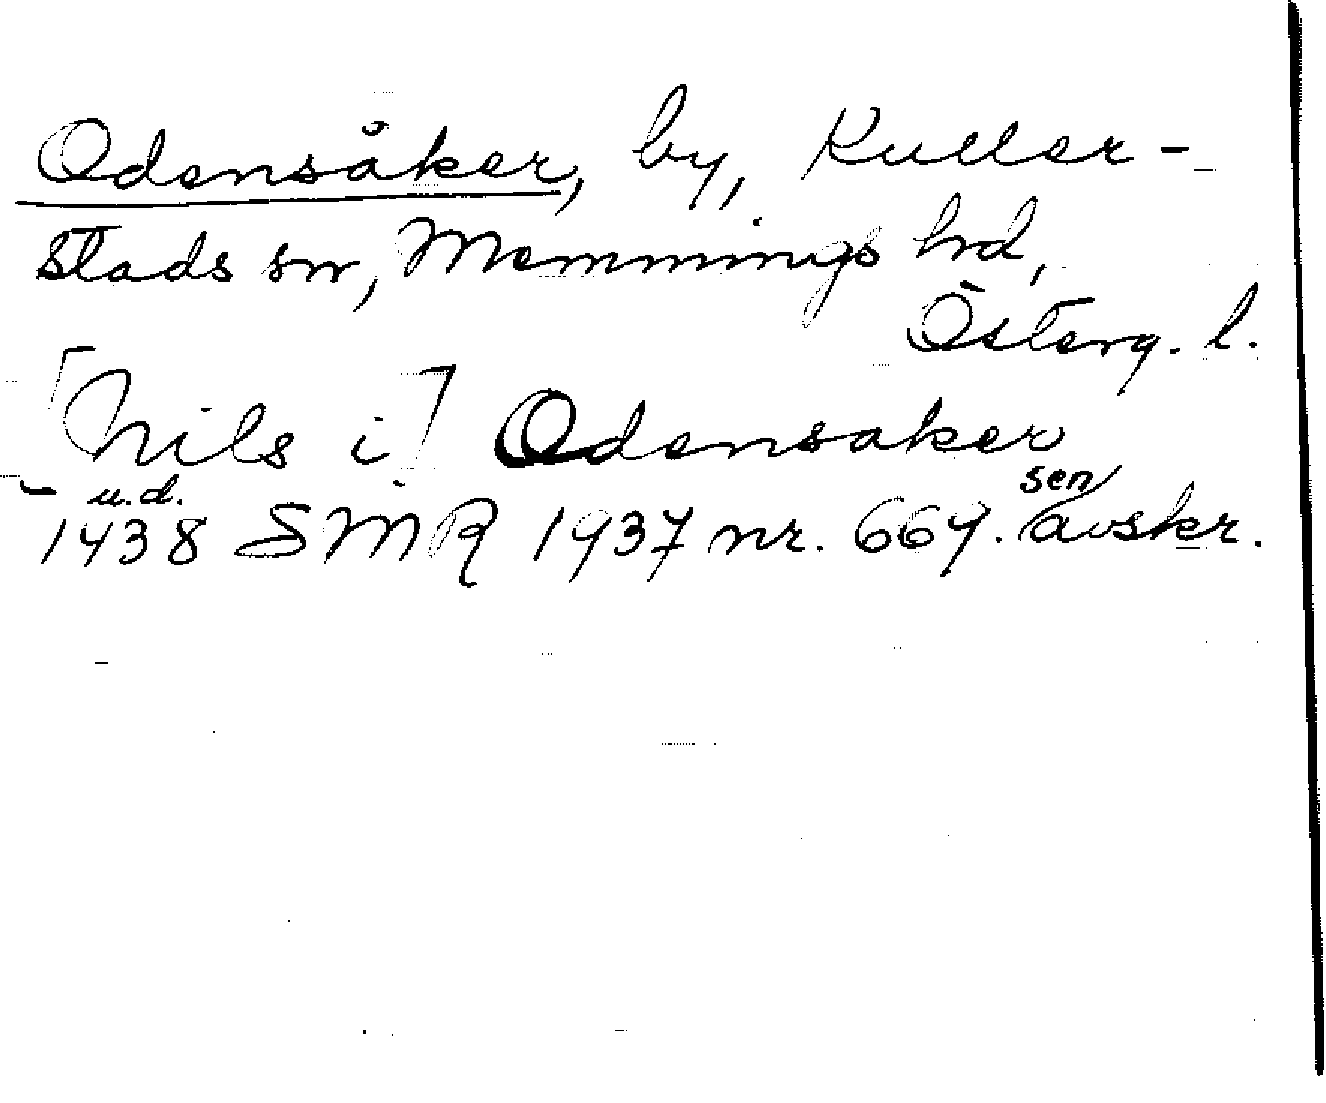 Odensåker, by, Kuller-
stads sn, Memmings hrd,
Österg. l.
[Nils i] Odensaker
u.d. sen
1438 SMR 1937 nr. 664. avskr.